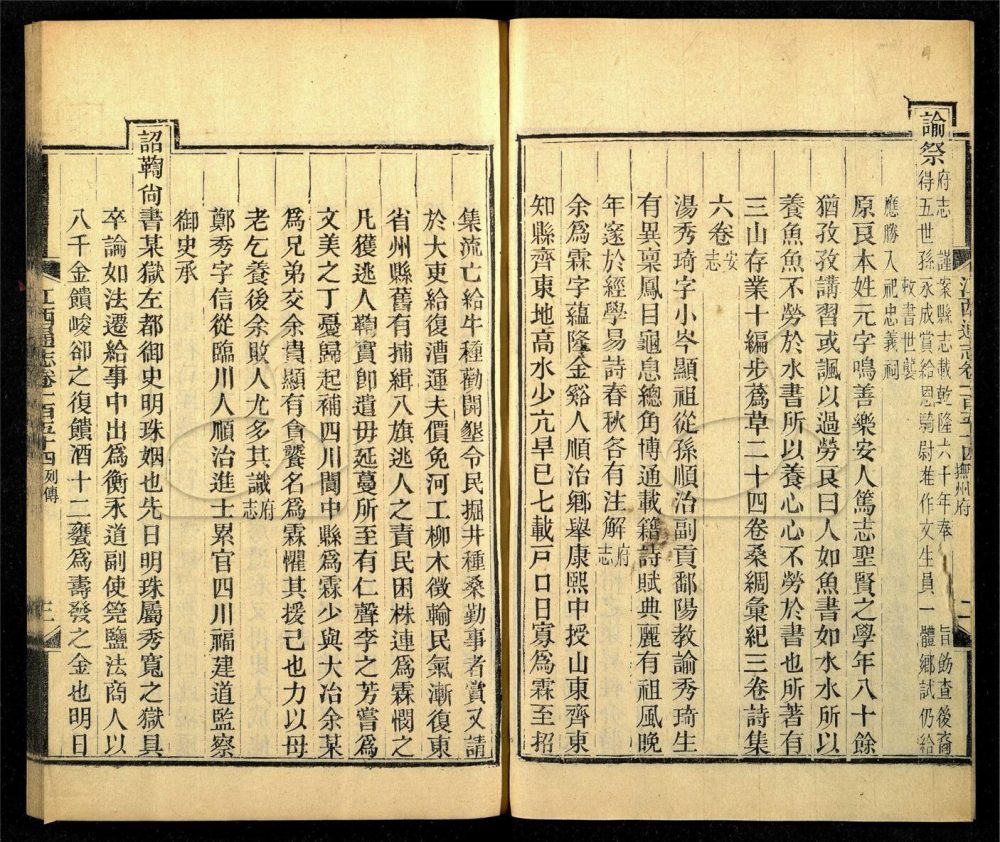 諭祭府志 謹案縣志載乾隆六十年奉 旨飭查後裔
得五世孫永成賞給恩騎尉准作文生員一體鄉試仍給
敕書世襲
應勝入祀忠義祠
原良本姓元字鳴善樂安人篤志聖賢之學年八十餘
猶孜孜講習或諷以過勞良曰人如魚書如水水所以
養魚魚不勞於水書所以養心心不勞於書也所著有
三山存業十編步蔿草二十四卷桑綢彙紀三卷詩集
六卷安志
湯秀琦字小岑顯祖從孫順治副貢鄱陽教諭秀琦生
有異稟鳳目龜息總角博通載籍詩賦典麗有祖風晚
年邃於經學易詩春秋各有注解府志
余為霖字蘊隆金谿人順治鄉舉康熙中授山東齊東
知縣齊東地高水少亢旱已七載戸口日寡為霖至招
江西通志卷一百五十四 撫州府
二
集流亡給牛種勸開墾令民掘井種桑勤事者賞又請
於大吏給復漕運夫價免河工柳木徵輸民氣漸復東
省州縣舊有捕緝八旗逃人之責民困株連為霖憫之
凡獲逃人鞫實卽遣毋延蔓所至有仁聲李之芳嘗為
文美之丁憂歸起補四川閬中縣為霖少與大冶余某
為兄弟交余貴顯有貪饕名為霖懼其援己也力以母
老乞養後余敗人尤多其識府志
鄭秀字信從臨川人順治進士累官四川福建道監察
御史承
詔鞫尙書某獄左都御史明珠姻也先日明珠屬秀寬之獄具
卒論如法遷給事中出為衡永道副使筦鹽法商人以
八千金饋峻卻之復饋酒十二甕為壽發之金也明日
江西通志卷一百五十四 列傳
三